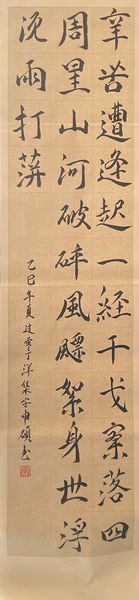 辛苦遭逢起一経干戈寥落四
周星山河破碎風飄絮身世浮
沈雨打萍
乙巳年夏过零丁洋集字申碩书